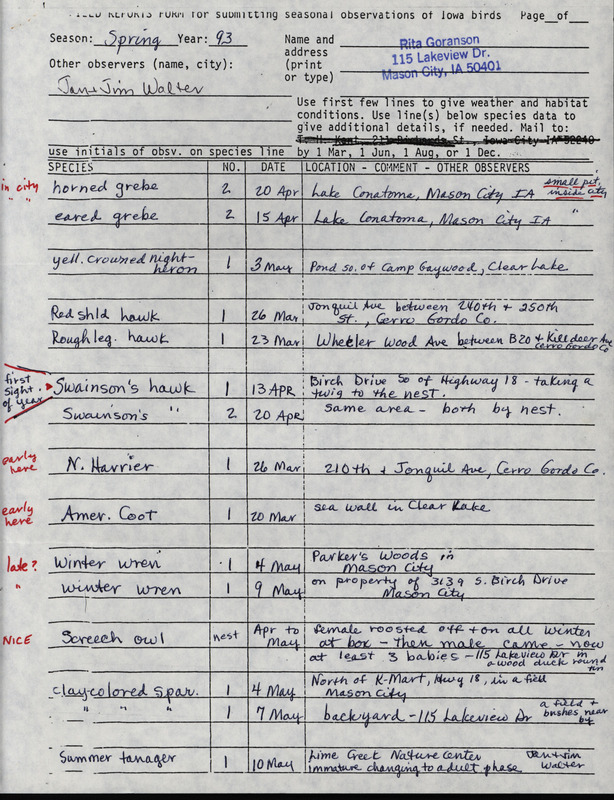 FIELD REPORTS FORM for submitting seasonal observations of Iowa birds Page of
Season: Spring Year: 93
Name and address (print or type)
Rita Goranson
115 Lakeview Dr.
Mason City, IA 50401
Other observers (name, city):
Jan + Jim Walter
Use first few lines to give weather and habitat
conditions. Use line(s) below species data to
give additional details, if needed. Mail to:
T.H. Kent, 211 Richards St., Iowa City IA 52240
use initials of obsv. on species line by 1 Mar, 1 Jun, 1 Aug, or 1 Dec.
SPECIES NO. DATE LOCATION - COMMENT - OTHER OBSERVERS
in city horned grebe 2 20 Apr Lake Conatoma, Mason City IA small pit, inside city
" " eared grebe 2 15 Apr Lake Conatoma, Mason City IA "
yell. crowned night-heron 1 3 May Pond so. of Camp Gaywood, Clear Lake
Red shld hawk 1 26 Mar Jonquil Ave between 240th + 250th
St., Cerro Gordo Co.
Rough leg. hawk 1 23 Mar Wheeler Wood Ave between B20 + Killdeer Ave
Cerro Gordo Co
first sight. of year Swainson's hawk 1 13 APR Birch Drive So of Highway 18 - taking a
twig to the nest.
Swainson's " 2 20 Apr same area - both by nest.
early here N. Harrier 1 26 Mar 210th + Jonquil Ave, Cerro Gordo Co.
early here Amer. Coot 1 20 Mar sea wall in Clear Lake
late? Winter wren 1 4 May Parker's Woods in
Mason City
" winter wren 1 9 May on property of 3139 S. Birch Drive
Mason City
NICE Screech owl nest Apr to May female roosted off + on all winter
at box - then male came - now
at least 3 babies - 115 Lakeview Dr in
a wood duck round
clay-colored spar. 1 4 May North of K-Mart, Hwy 18, in a field
Mason City
" " " 1 7 May backyard - 115 Lakeview Dr a field + bushes near by
Summer tanager 1 10 May Lime Creek Nature Center Jan + Jim
immature changing to adult phase Walter